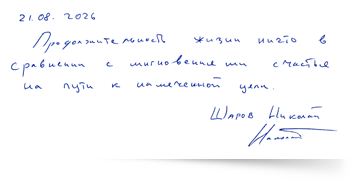 21.08.2026
Продолжительность жизни ничто в
сравнении с мгновениями счастья
на пути к намеченной цели.
Шаров Николай